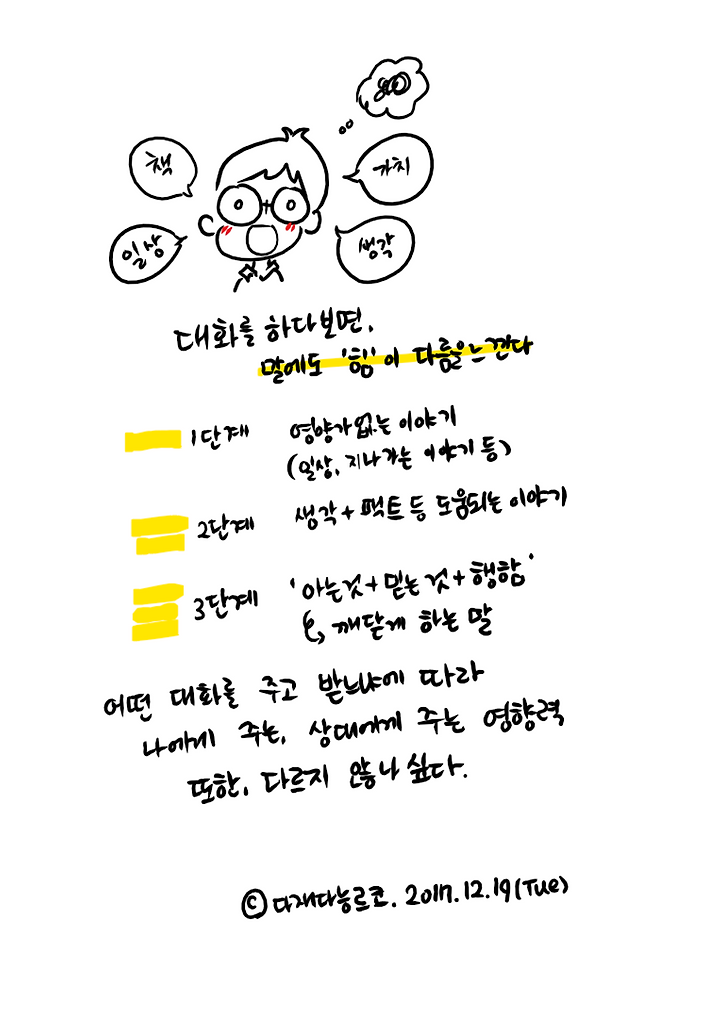 책
가치
일상
생각
대화를 하다보면,
말에도 '힘'이 다름을 느낀다
1단계 영양가 없는 이야기
(일상, 지나가는 이야기 등)
2단계 생각 + 팩트 등 도움되는 이야기
3단계 '아는것 + 믿는것 + 행함'
깨닫게 하는 말
어떤 대화를 주고 받느냐에 따라
나에게 주는, 상대에게 주는 영향력
또한, 다르지 않나 싶다.
© 다재다능르코. 2017.12.19(Tue)